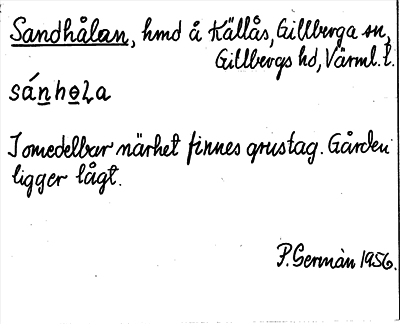 Sandhålan, hmd å Källås, Gillberga sn,
Gillbergs hd, Värml. l.
sánhɵLa
I omedelbar närhet finnes grustag. Gården
ligger lågt.
P. Germán 1956.